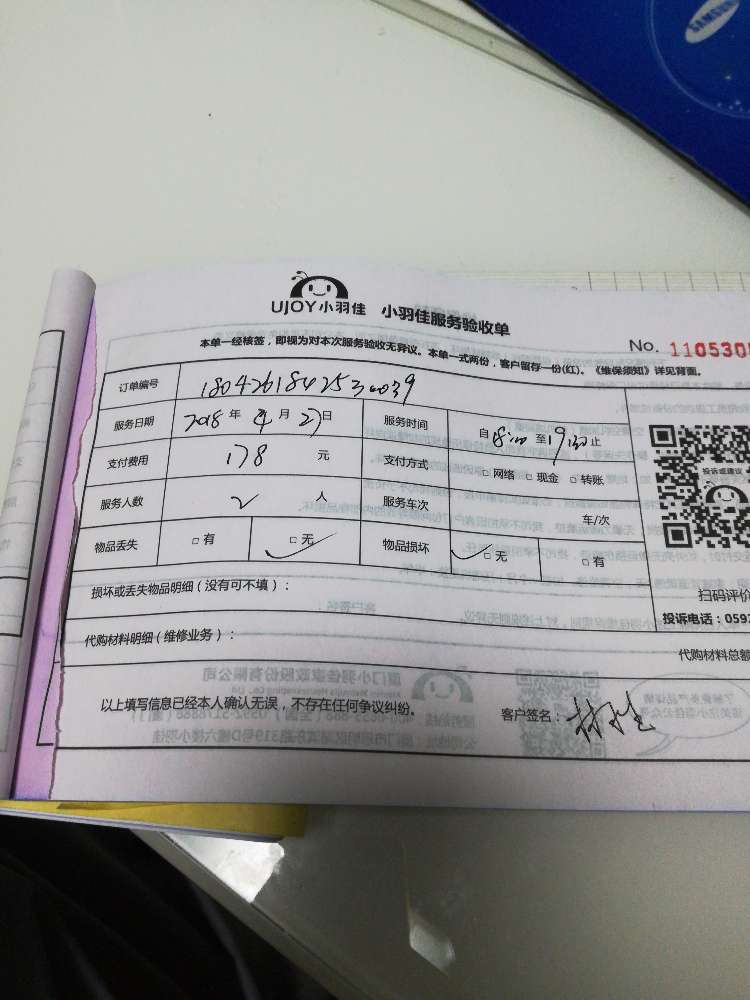 SAMSUNG
UJOY小羽佳 小羽佳服务验收单
No. 110530
本单一经核签，即视为对本次服务验收无异议。本单一式两份，客户留存一份(红)。《维保须知》详见背面。
订单编号
服务日期 2018 年 4 月 27日 服务时间 自 18:00 至 19:00 止
支付费用 178 元 支付方式 □ 网络 □ 现金 □ 转账
服务人数 2 人 服务车次 车/次
物品丢失 □ 有 □ 无 物品损坏 □ 无 □ 有
投诉或建议
扫码评价
损坏或丢失物品明细（没有可不填）：
投诉电话：059
代购材料明细（维修业务）：
代购材料总额
以上填写信息已经本人确认无误，不存在任何争议纠纷。 客户签名：